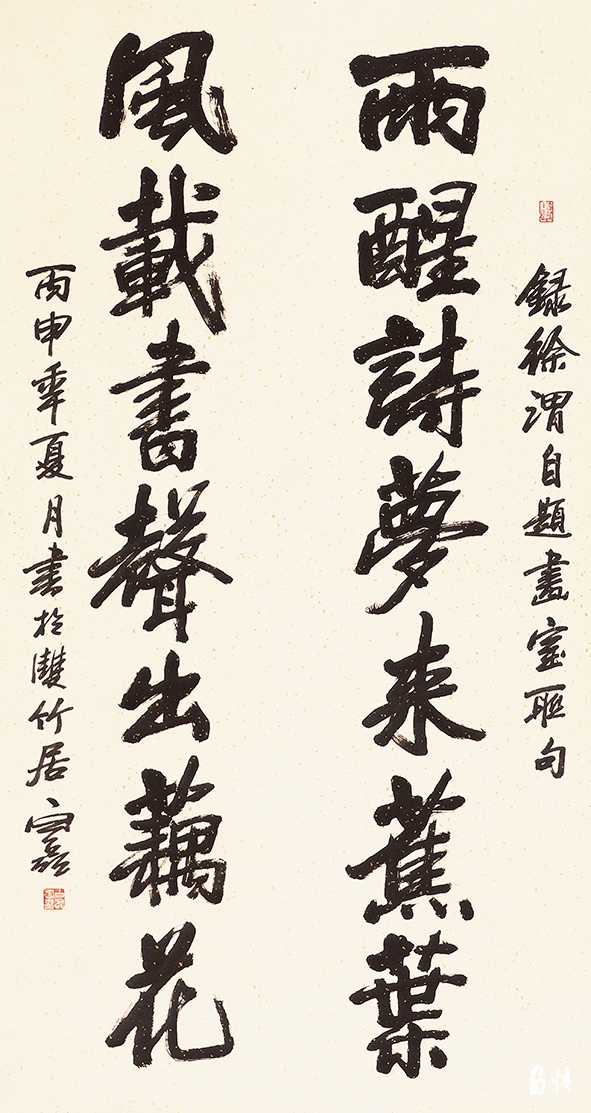 録徐渭自題畫室聯句
雨醒詩夢來蕉葉
風載書聲出藕花
丙申季夏月書於雙竹居